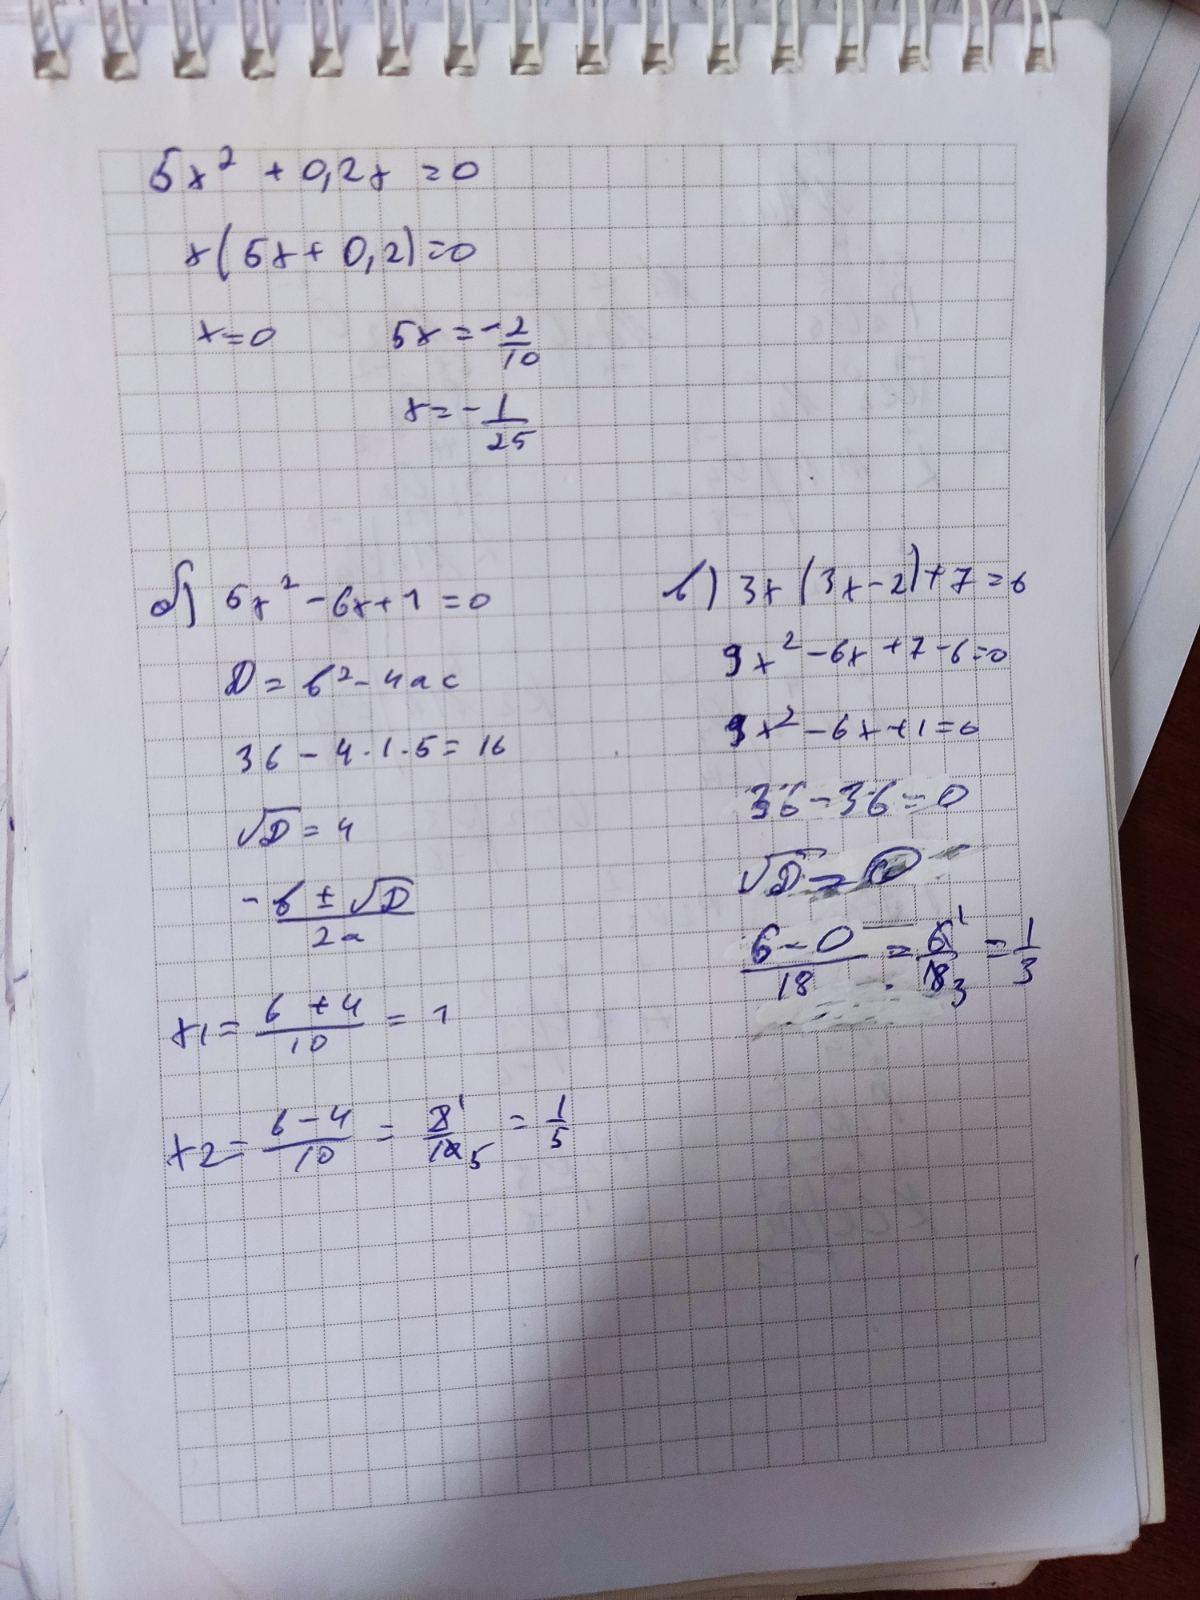 5x² + 0,2x = 0
x(5x + 0,2) = 0
x = 0   5x = -2/10
x = -1/25
б) 5x² - 6x + 1 = 0
D = b² - 4ac
36 - 4·1·5 = 16
√D = 4
-b ± √D / 2a
x1 = 6 + 4 / 10 = 1
x2 = 6 - 4 / 10 = 2 1 / 10 5 = 1/5
в) 3x(3x - 2) + 7 = 6
9x² - 6x + 7 - 6 = 0
9x² - 6x + 1 = 0
36 - 36 = 0
√D = 0
6 - 0 / 18 = 6 1 / 18 3 = 1/3